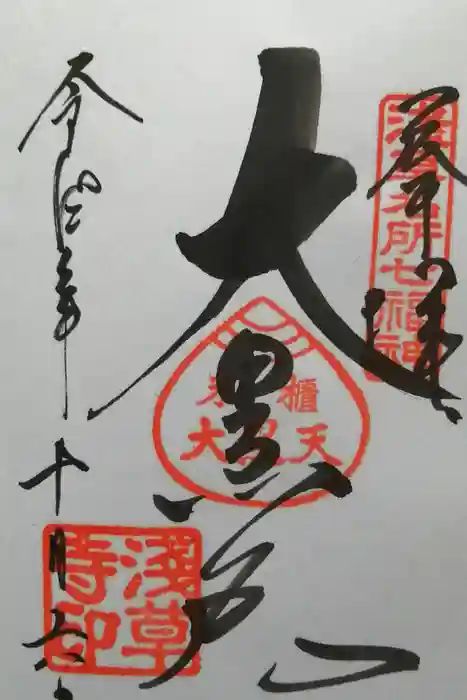 奉拝
浅草名所七福神
大黒天
米櫃
大黒天
令和四年十月六日
浅草
寺印